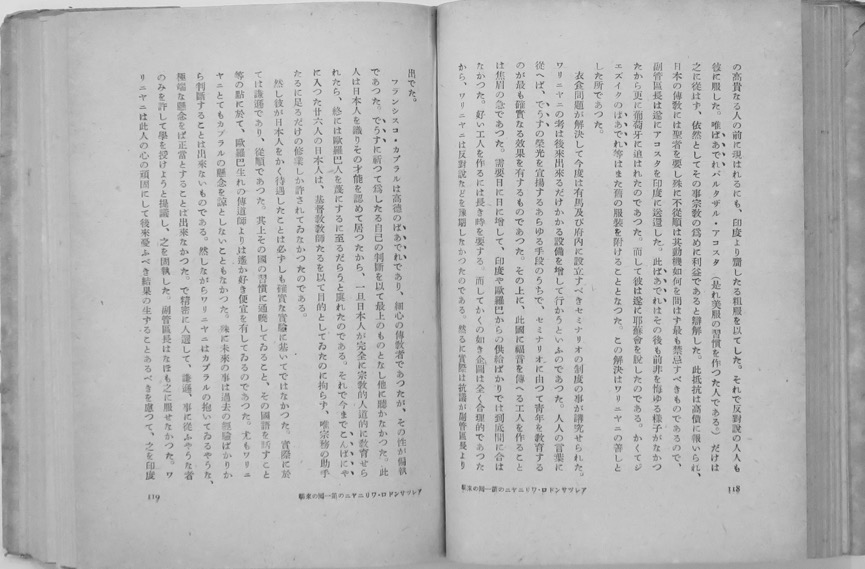 の高貴なる人の前に現はれるにも、印度より齎したる粗服を以てした。それで反對說の人人も
彼に服した。唯ばあでれバルタザル・アコスタ（是れ美服の習慣を作つた人である）だけは
之に從はず、依然としてその事宗敎の爲めに利益であると辯解した。此抵抗は高價に報いられ、
日本の傳敎には聖者を要し殊に不從順は其動機如何を問はず最も禁忌すべきものであるので、
副管區長は遂にアコスタを印度に送還した。此ばあでれはその後も前非を悔ゆる樣子がなかつ
たから更に葡萄牙に追はれたのであつた。而して彼は遂に耶蘇會を脫したのである。かくてジ
エズイタのばあでれ等はまた舊の服裝を附けることとなつた。この解決はワリニヤニの善しと
した所であつた。
衣食問題が解決して今度は有馬及び府內に設立すべきセミナリオの制度の事が講究せられた。
ワリニヤニの考は後來出來るだけかかる設備を增して行かうといふのであつた。人人の言葉に
從へば、でうすの榮光を宣揚するあらゆる手段のうちで、セミナリオに由つて靑年を敎育する
のが最も確實なる效果を有するものであつた。その上に、此國に福音を傳へる工人を作ること
は焦眉の急であつた。需要日に日に增して、印度や歐羅巴からの供給ばかりでは到底間に合は
なかつた。好い工人を作るには長き時を要する。而してかくの如き企圖は全く合理的であつた
から、ワリニヤニは反對說などを豫期しなかつたのである。然るに實際は抗議が副管區長より
アレッサンドロ・ワリニヤニの第一囘の來朝
118
出でた。
フランシスコ・カブラルは高德のばあでれであり、細心の傳敎者であつたが、その性が偏執
であつた。でうすに祈つて爲したる自己の判斷を以て最上のものとなし他に聽かなかつた。此
人は日本人を識りその才能を認めて居つたから、一旦日本人が完全に宗敎的人道的に敎育せら
れたら、終には歐羅巴人を蔑にするに至るだらうと虞れたのである。それで今までこんぱにや
に入つた廿六人の日本人は、基督敎敎師たるを以て目的としてゐたのに拘らず、唯宗務の助手
たるに足るだけの修業しか許されてゐなかつたのである。
然し彼が日本人をかく待遇したことは必ずしも確實な實驗に基いてではなかつた。實際に於
ては謙遜であり、從順であつた。其上その國の習慣に通曉してゐること、その國語を話すこと
等の點に於て、歐羅巴生れの傳道師よりは遙か好き便宜を有してゐるのであつた。尤もワリニ
ヤニとてもカブラルの懸念を諒としないこともなかつた。殊に未來の事は過去の經驗ばかりか
ら判斷することは出來ないものである。然しながらワリニヤニはカブラルの抱いてゐるやうな、
極端な懸念をば正當とすることは出來なかつた。で精密に人選して、謙遜、事に從ふやうな者
のみを許して學を授けようと提議し、之を固執した。副管區長はなほも之に服せなかつた。ワ
リニヤニは此人の心の頑固にして後來憂ふべき結果の生ずることあるべきを慮つて、之を印度
アレッサンドロ・ワリニヤニの第一囘の來朝
119